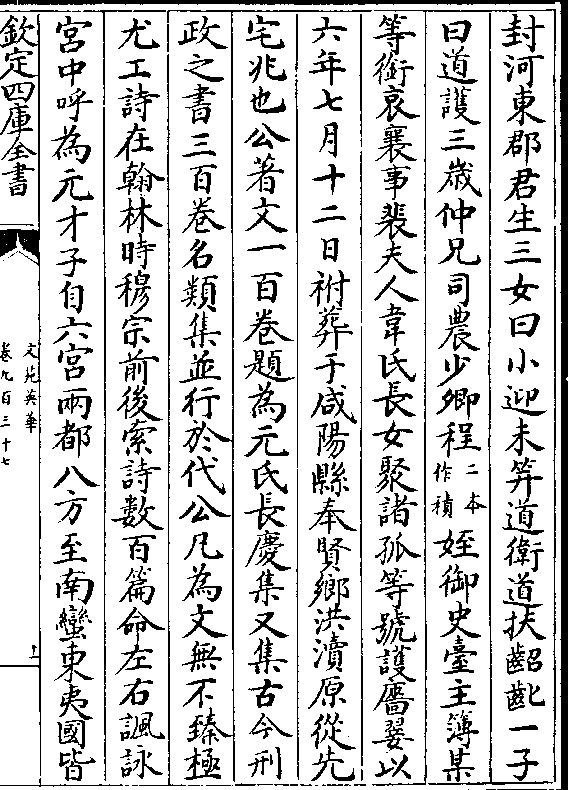 封河東郡君生三女曰小迎未笄道衛道扶齠齔一子
曰道護三歲仲兄司農少卿程二本作積姪御史臺主簿某
等銜哀襄事裴夫人韋氏長女聚諸孤等號護廞翣以
六年七月十二日祔葬于咸陽縣奉賢鄉洪瀆原從先
宅兆也公著文一百卷題為元氏長慶集又集古今刑
政之書三百卷名類集並行於代公凡為文無不臻極
尤工詩在翰林時穆宗前後索詩數百篇命左右諷詠
宮中呼為元才子自六宮兩都八方至南蠻東夷國皆
欽定四庫全書
文苑英華
卷九百三十七